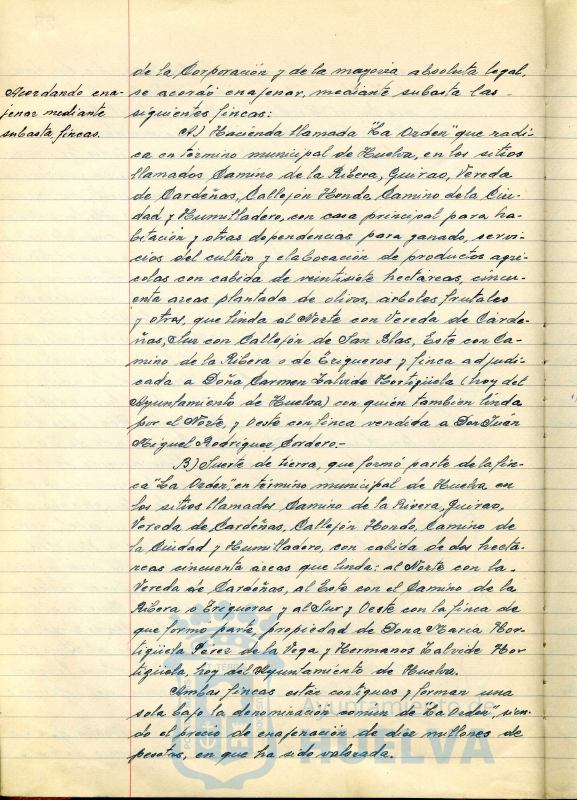 de la Corporación y de la mayoría absoluta legal,
Acordando ena-
jenar mediante
subasta fincas.
se acordó enajenar, mediante subasta las
siguientes fincas:
A) Hacienda llamada "La Orden" que radi-
ca en término municipal de Huelva, en los sitios
llamados Camino de la Ribera, Guirao, Vereda
de Cardeñas, Callejón Hondo, Camino de la Ciu-
dad y Humilladero, con casa principal para ha-
bitación y otras dependencias para ganado, servi-
cios del cultivo y elaboración de productos agrí-
colas con cabida de veintisiete hectáreas, cincu-
enta áreas plantada de olivos, árboles frutales
y otros, que linda al Norte con Vereda de Carde-
ñas, Sur con Callejón de San Blas, Este con Ca-
mino de la Ribera o de Erigueros y finca adjudi-
cada a Doña Carmen Zalvide Hortigüela (hoy del
Ayuntamiento de Huelva) con quien tambien linda
por el Norte, y Oeste con finca vendida a Don Juán
Miguel Rodríguez Cordero.-
B) Suerte de tierra, que formó parte de la fin-
ca "La Orden", en término municipal de Huelva en
los sitios llamados Camino de la Rivera, Guirao,
Vereda de Cardeñas, Callejón Hondo, Camino de
la Ciudad y Humilladero, con cabida de dos hectá-
reas cincuenta áreas que linda: al Norte con la
Vereda de Cardeñas, al Este con el Camino de la
Ribera o Erigueros y al Sur y Oeste con la finca de
que formó parte, propiedad de Dona Maria Hor-
tigüela Pérez de la Vega y Hermanos Zalvide Hor
tigüela, hoy del Ayuntamiento de Huelva.
Ambas fincas están contiguas y forman una
sola bajo la denominación común de "La Orden", sien-
do el precio de enajenación de diez millones de
pesetas, en que ha sido valorada.
Ayuntamiento de
HUELVA